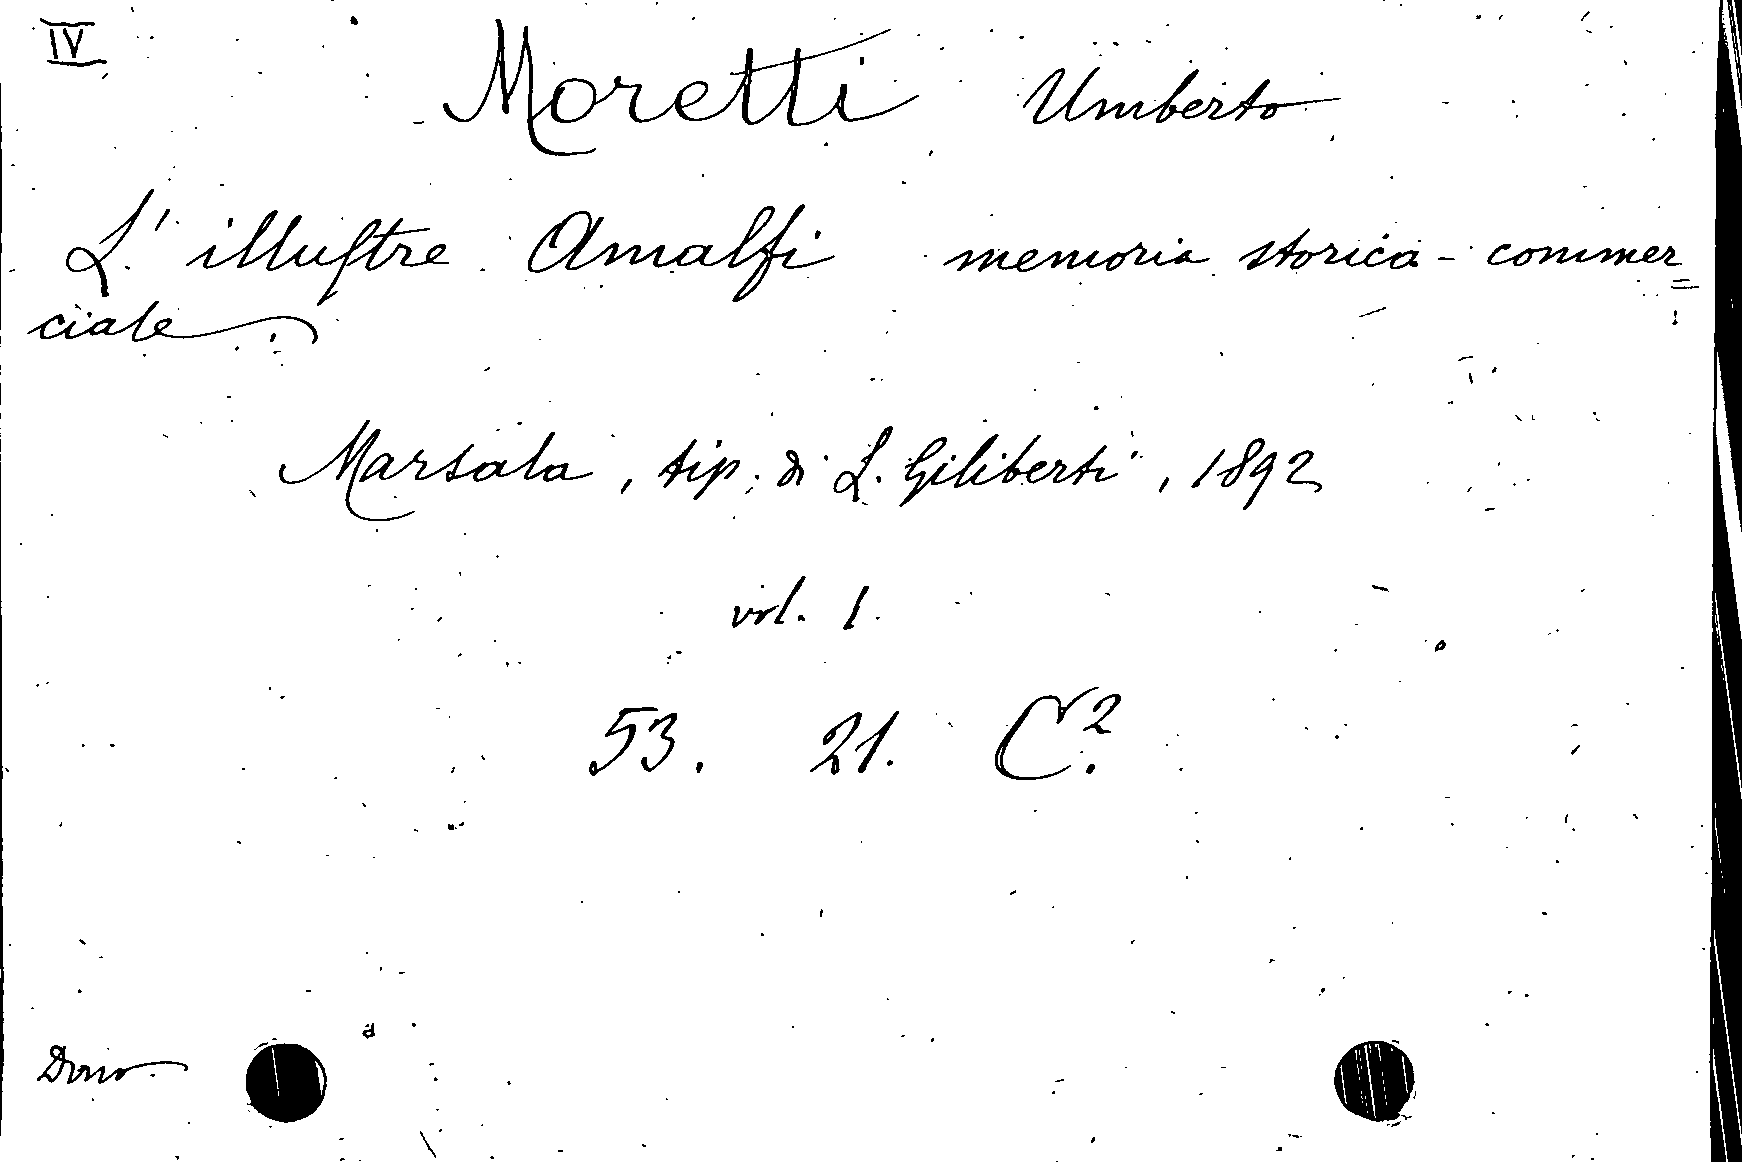 IV
Moretti Umberto
L' illustre Amalfi memoria storica - commer=
ciale.
Marsala, tip. di L. Giliberti, 1892
vol. 1.
53. 21. C².
Dono